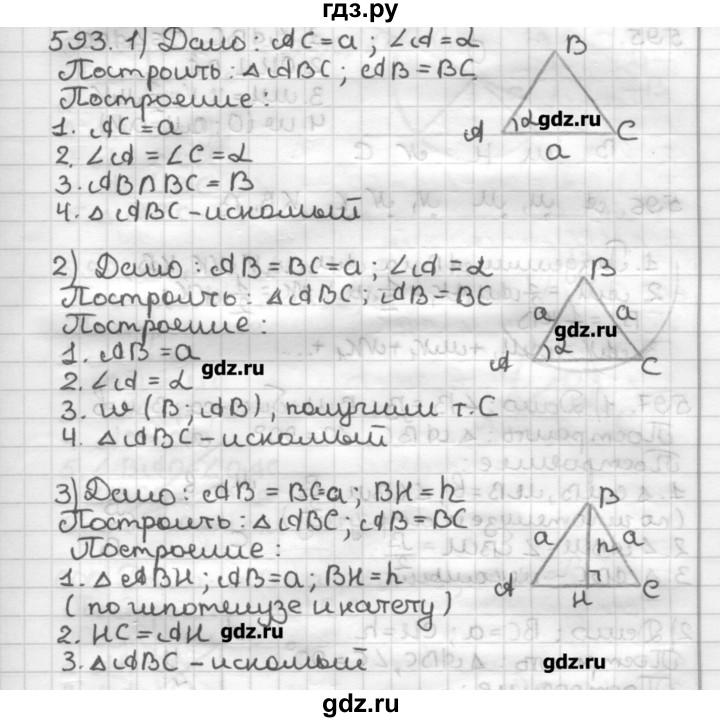 гдз.ру
593. 1) Дано: AC = a; ∠A = α
Построить: △ABC; AB = BC
Построение:
1. AC = a
2. ∠A = ∠C = α
3. AB ∩ BC = B
4. △ABC - искомый
B
A
α
gdz.ru
C
a
2) Дано: AB = BC = a; ∠A = α
Построить: △ABC; AB = BC
Построение:
1. AB = a
gdz.ru
2. ∠A = α
3. w (B; AB), получим т. C
4. △ABC - искомый
B
a
a
gdz.ru
A
α
C
3) Дано: AB = BC = a; BH = h
Построить: △ABC; AB = BC
Построение:
1. △ABH; AB = a; BH = h
(по гипотенузе и катету)
2. HC = AH
gdz.ru
3. △ABC - искомый
B
a
h
a
A
H
C
gdz.ru
gdz.ru